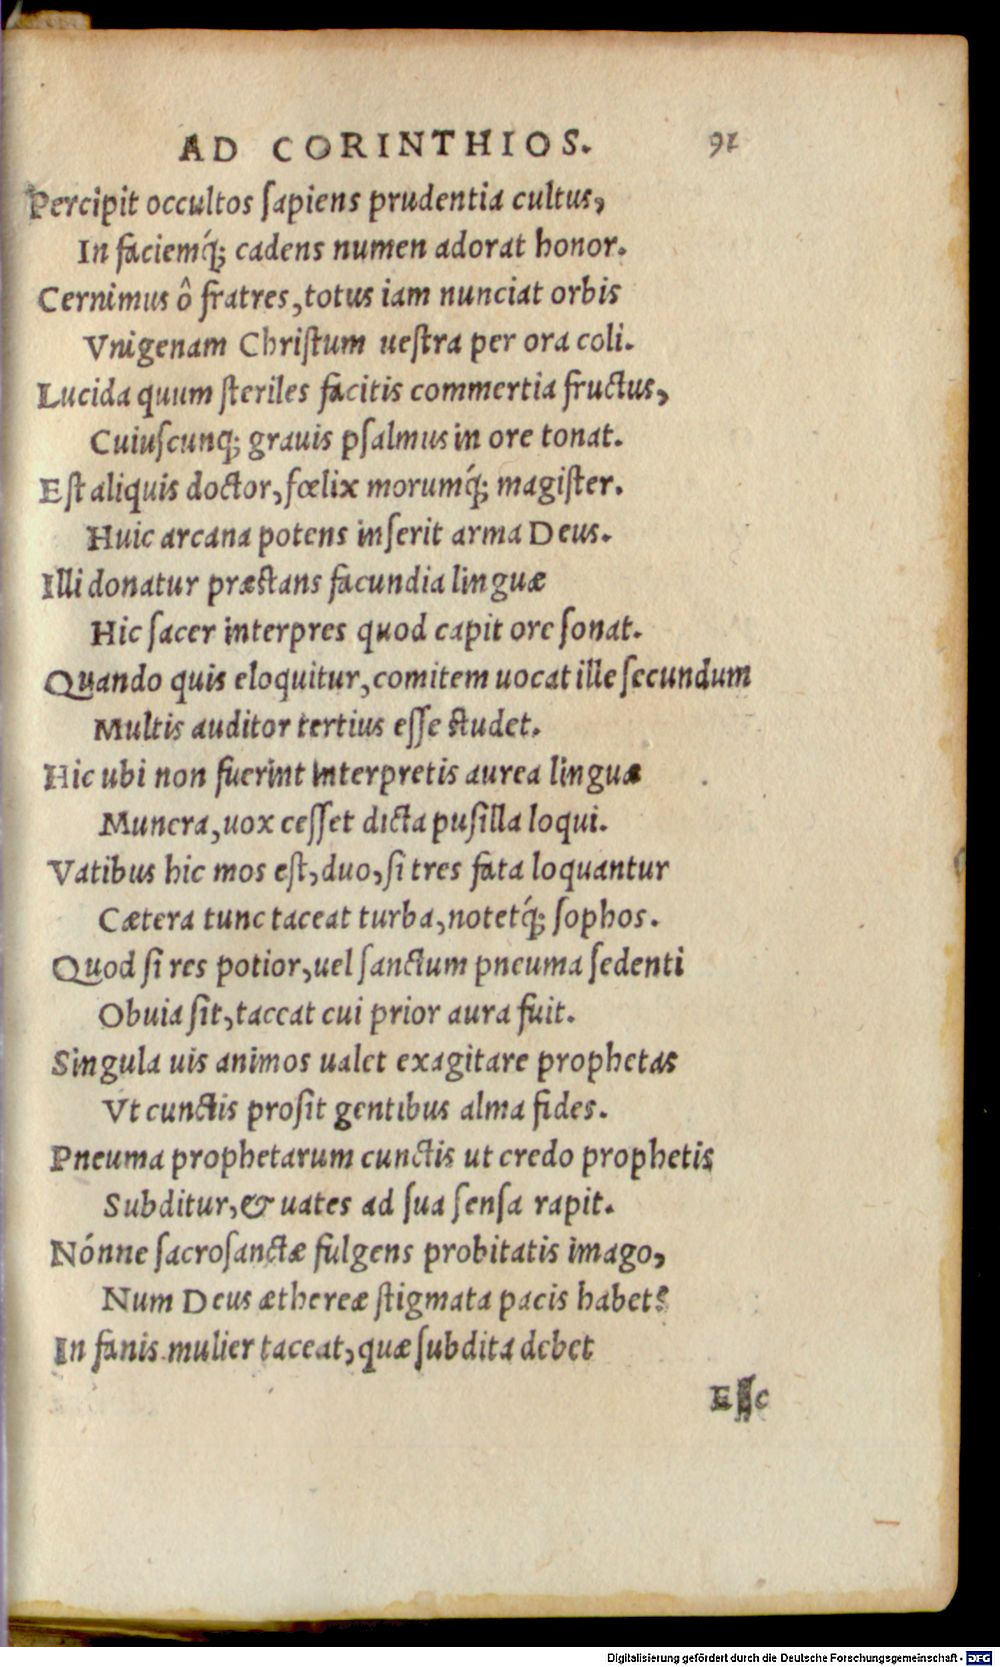 AD CORINTHIOS. 91
Percipit occultos ſapiens prudentia cultus,
In faciemq́; cadens numen adorat honor.
Cernimus ô fratres, totus iam nunciat orbis
Vnigenam Chriſtum ueſtra per ora coli.
Lucida quum ſteriles facitis commertia fructus,
Cuiuſcunq; grauis pſalmus in ore tonat.
Eſt aliquis doctor, fœlix morumq́; magiſter.
Huic arcana potens inſerit arma Deus.
Illi donatur præſtans facundia linguæ
Hic ſacer interpres quod capit ore ſonat.
Quando quis eloquitur, comitem uocat ille ſecundum
Multis auditor tertius eſſe ſtudet.
Hic ubi non fuerint interpretis aurea linguæ
Munera, uox ceſſet dicta puſilla loqui.
Vatibus hic mos eſt, duo, ſi tres fata loquantur
Cætera tunc taceat turba, notetq́; ſophos.
Quod ſi res potior, uel ſanctum pneuma ſedenti
Obuia ſit, taceat cui prior aura fuit.
Singula uis animos ualet exagitare prophetas
Vt cunctis proſit gentibus alma fides.
Pneuma prophetarum cunctis ut credo prophetis
Subditur, & uates ad ſua ſenſa rapit.
Nónne ſacroſanctæ fulgens probitatis imago,
Num Deus æthereæ ſtigmata pacis habet?
In fanis mulier taceat, quæ ſubdita debet
Digitalisierung gefördert durch die Deutsche Forschungsgemeinschaft - DFG